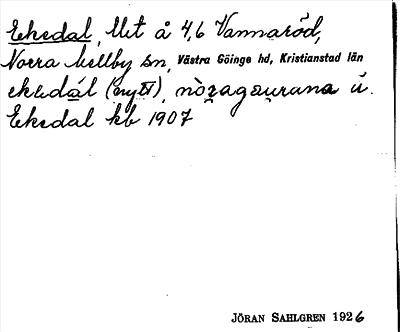 Ekedal, lht å 4,6 Vannaröd,
Norra Mellby sn, Västra Göinge hd, Kristianstad län
ekedál (nytt), u.
Ekedal kb 1907
JÖRAN SAHLGREN 1926